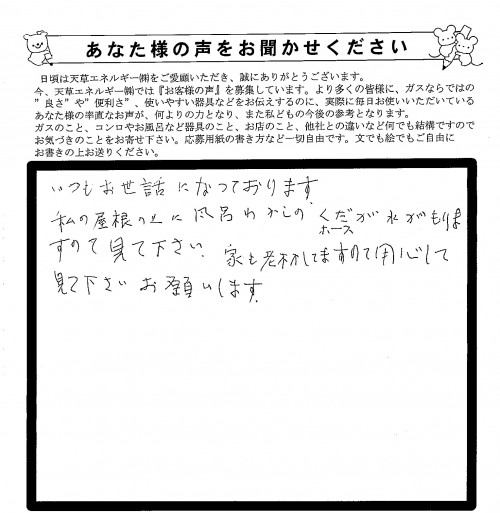 あなた様の声をお聞かせください
日頃は天草エネルギー㈱をご愛顧いただき、誠にありがとうございます。
今、天草エネルギー㈱では『お客様の声』を募集しています。より多くの皆様に、ガスならではの
”良さ”や”便利さ”、使いやすい器具などをお伝えするのに、実際に毎日お使いいただいている
あなた様の率直なお声が、何よりの力となり、また私どもの今後の参考となります。
ガスのこと、コンロやお風呂など器具のこと、お店のこと、他社との違いなど何でも結構ですので
お気づきのことをお寄せ下さい。応募用紙の書き方など一切自由です。文でも絵でもご自由に
お書きの上お送りください。
いつもお世話になっております。
私の屋根の上に風呂わかしのくだが水がもりま
ホース
すので見て下さい。家も老朽してますので用心して
見て下さいお願いします。